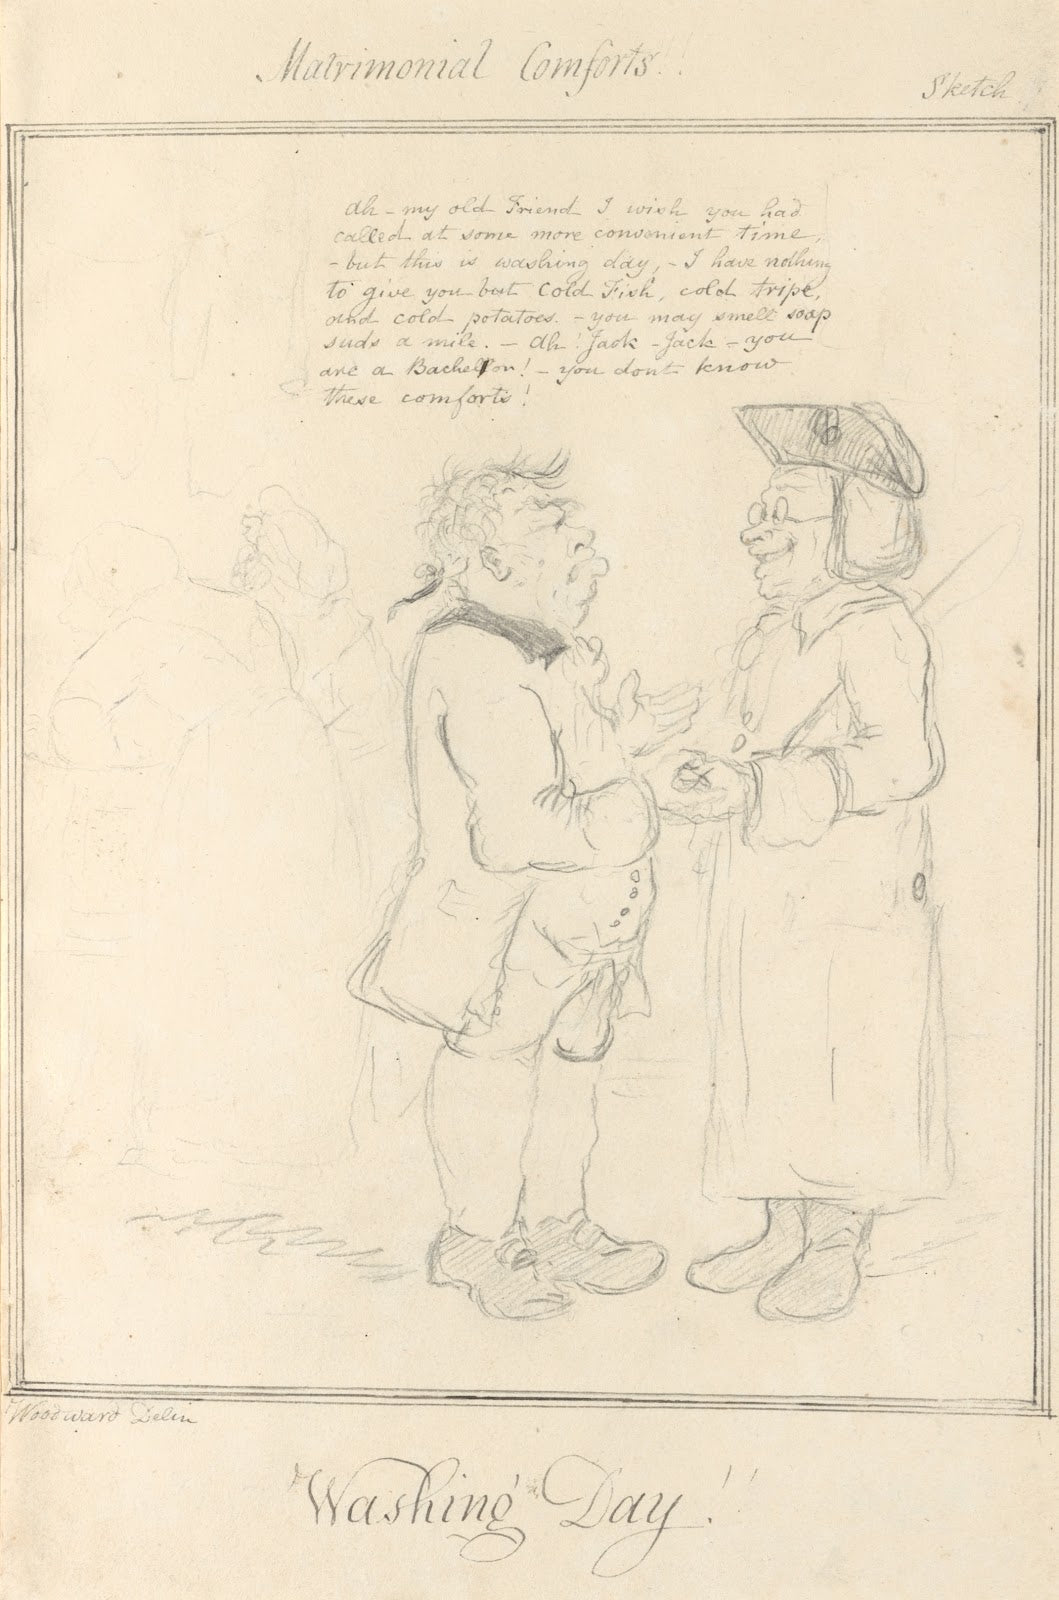 Matrimonial Comforts!!
Sketch
Ah - my old Friend I wish you had
called at some more convenient time,
- but this is washing day, - I have nothing
to give you but Cold Fish, cold tripe,
and cold potatoes. - you may smell soap
suds a mile. - Ah! Jack - Jack - you
are a Bachellor! - you dont know
these comforts!
Woodward Delin
Washing Day!!